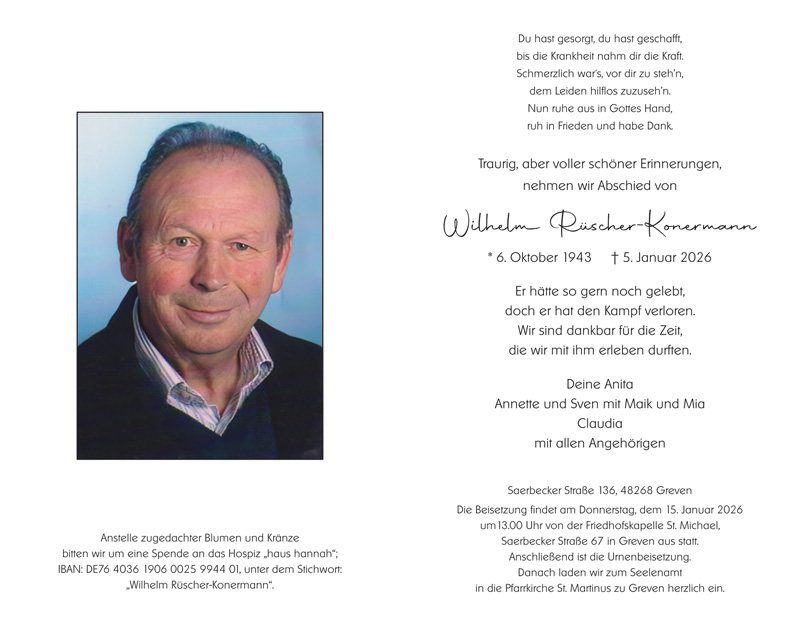 Du hast gesorgt, du hast geschafft,
bis die Krankheit nahm dir die Kraft.
Schmerzlich war's, vor dir zu steh'n,
dem Leiden hilflos zuzuseh'n.
Nun ruhe aus in Gottes Hand,
ruh in Frieden und habe Dank.
Traurig, aber voller schöner Erinnerungen,
nehmen wir Abschied von
Wilhelm Rüscher-Konermann
* 6. Oktober 1943 † 5. Januar 2026
Er hätte so gern noch gelebt,
doch er hat den Kampf verloren.
Wir sind dankbar für die Zeit,
die wir mit ihm erleben durften.
Deine Anita
Annette und Sven mit Maik und Mia
Claudia
mit allen Angehörigen
Saerbecker Straße 136, 48268 Greven
Die Beisetzung findet am Donnerstag, dem 15. Januar 2026
um13.00 Uhr von der Friedhofskapelle St. Michael,
Saerbecker Straße 67 in Greven aus statt.
Anschließend ist die Urnenbeisetzung.
Danach laden wir zum Seelenamt
in die Pfarrkirche St. Martinus zu Greven herzlich ein.
Anstelle zugedachter Blumen und Kränze
bitten wir um eine Spende an das Hospiz „haus hannah“;
IBAN: DE76 4036 1906 0025 9944 01, unter dem Stichwort:
„Wilhelm Rüscher-Konermann“.